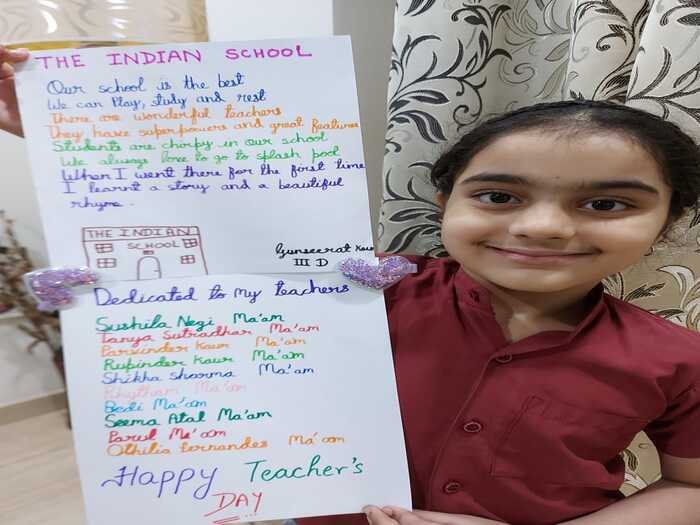 THE INDIAN SCHOOL
Our school is the best
We can Play, study and rest
There are wonderful teachers
They have superpowers and great featuries
Students are chorpy in our school
We always love to go to splash pool
When I went there for the first time
I learnt a story and a beautiful
rhyme.
THE INDIAN
SCHOOL
Gunseerat Kaur
III D
Dedicated to my teachers
Sushila Negi Ma'am
Tanya Sutradhar Ma'am
Parvinder Kaur Ma'am
Rupinder Kaur Ma'am
Shikha sharma Ma'am
Rhytham Ma'am
Bedi Ma'am
Seema Atal Ma'am
Parul Ma'am
Othilia Fernandes Ma'am
Happy Teacher's
DAY